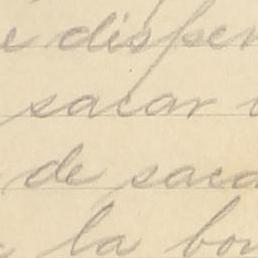 e disper
sacar
de saca
la bon